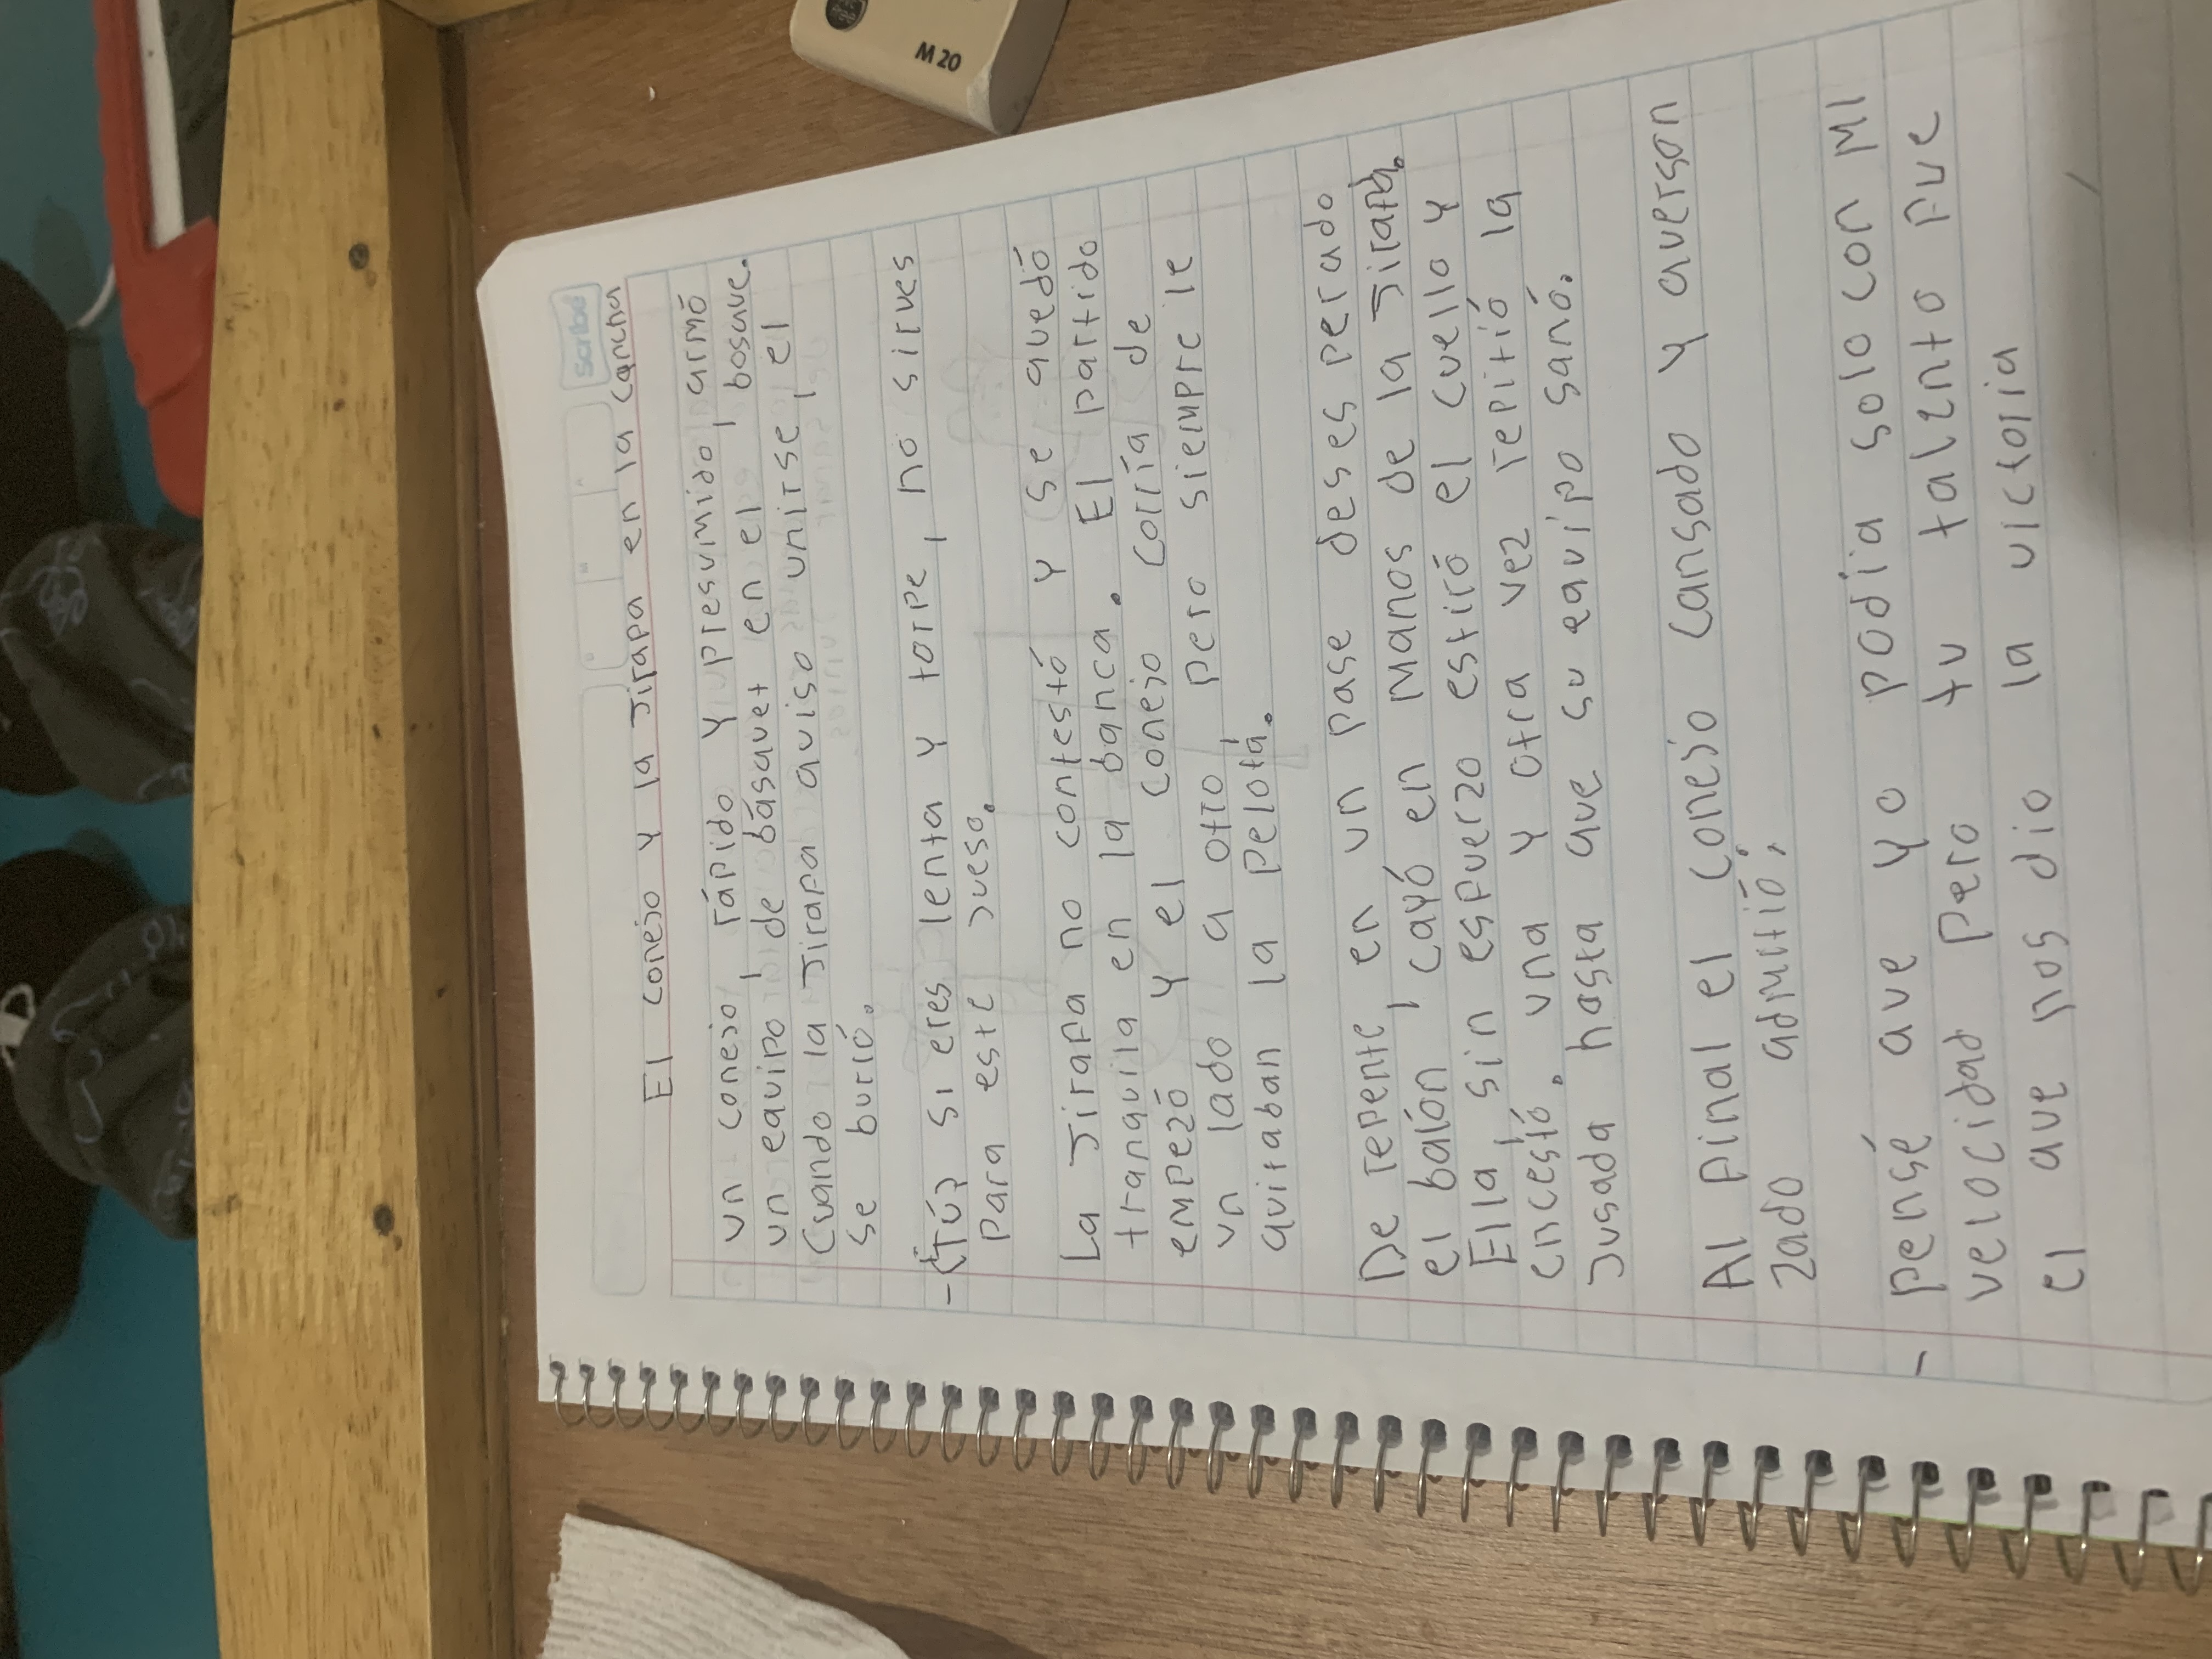 Scribe
El conejo y la Jirafa en la cancha
un conejo, rápido y presumido, armó
un equipo, de básquet en el, bosque.
Cuando la Jirafa quiso unirse, el
se burló.
-¿Tú? si eres lenta y torpe, no sirves
para este juego.
La Jirafa no contestó y se quedó
tranquila en la banca. El partido
empezó y el conejo corría de
un lado a otro, pero siempre le
quitaban la pelota.
De repente en un pase desesperado
el balón, cayó en manos de la Jirafa.
Ella, sin esfuerzo estiró el cuello y
encestó. una y otra vez repitió la
jugada hasta que su equipo ganó.
Al final el conejo cansado y avergon
zado admitió:
- pensé que yo podia solo con mi
velocidad pero tu talento fue
el que nos dio la victoria
M 20